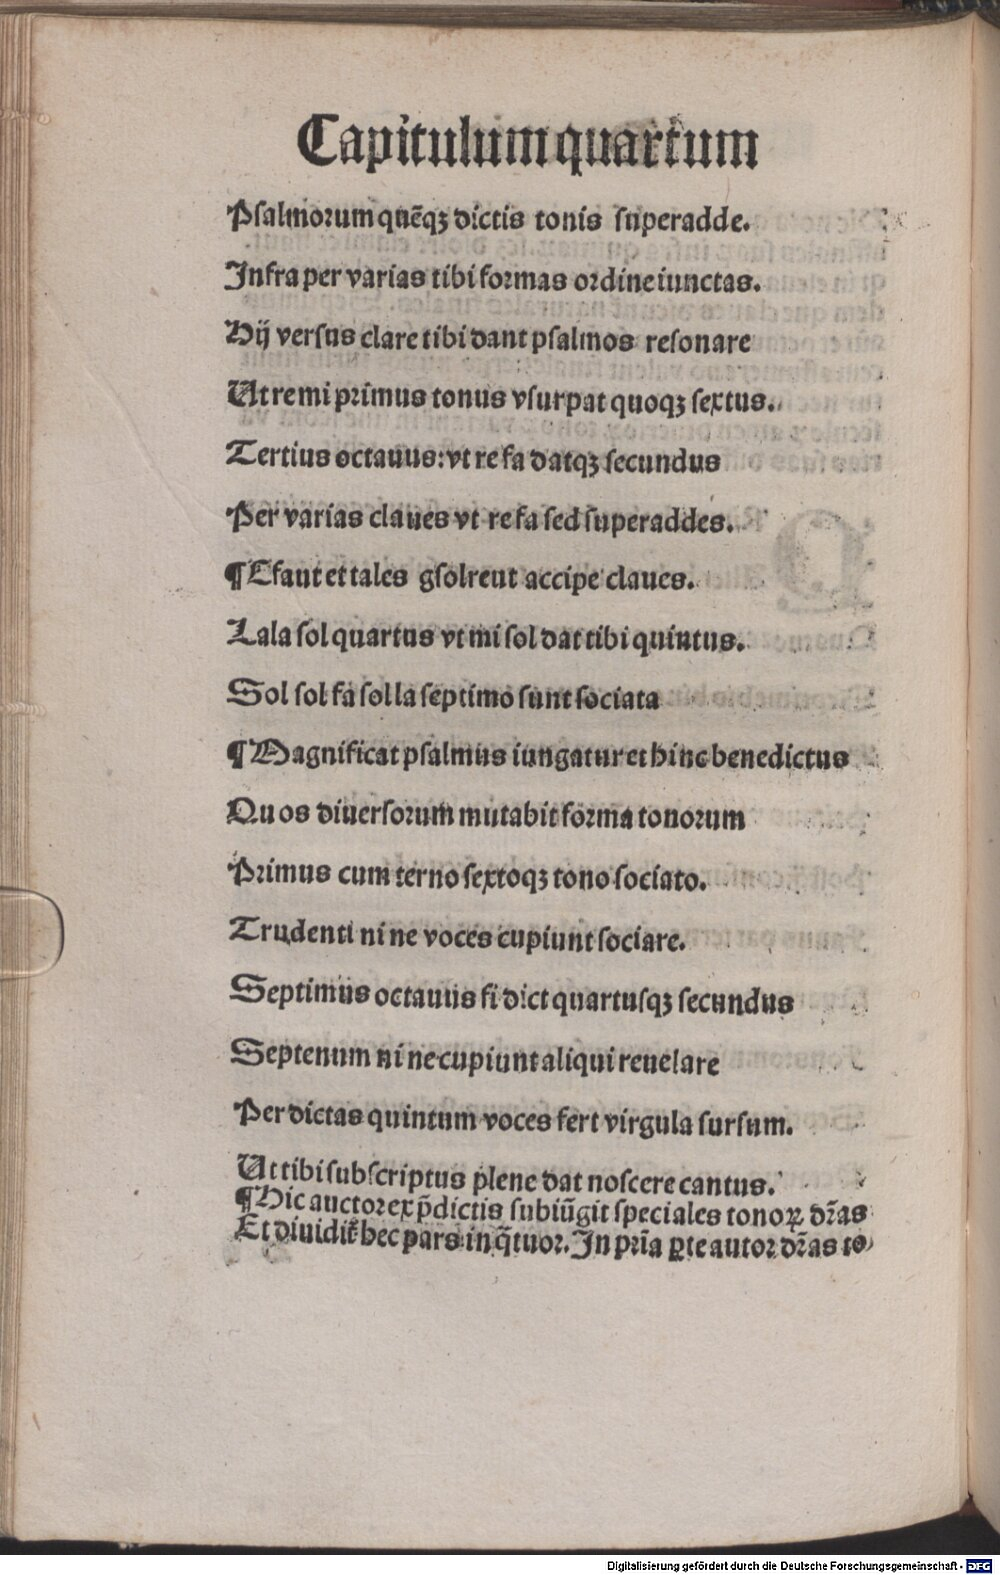 Capitulum quartum
Psalmorum quēqꝫ dictis tonis superadde.
Infra per varias tibi formas ordine iunctas.
Hij versus clare tibi dant psalmos resonare
Ut re mi primus tonus vsurpat quoqꝫ sextus.
Tertius octauus: vt re fa datqꝫ secundus
Per varias claues vt re fa sed superaddes.
¶ Cfaut et tales gsolreut accipe claues.
La la sol quartus vt mi sol dat tibi quintus.
Sol sol fa sol la septimo sunt sociata
¶ Magnificat psalmus iungatur et hinc benedictus
Quos diuersorum mutabit forma tonorum
Primus cum terno sextoqꝫ tono sociato.
Trudenti ni ne voces cupiunt sociare.
Septimus octauus si dict quartusqꝫ secundus
Septenum ni ne cupiunt aliqui reuelare
Per dictas quintum voces fert virgula sursum.
Ut tibi subscriptus plene dat noscere cantus.
¶ Hic auctor ex p̄dictis subiūgit speciales tonoꝝ dr̄as
Et diuidit᷑ hec pars in q̄tuor. In pri̅a ꝑte autor dr̄as to⸗
Digitalisierung gefördert durch die Deutsche Forschungsgemeinschaft - DFG